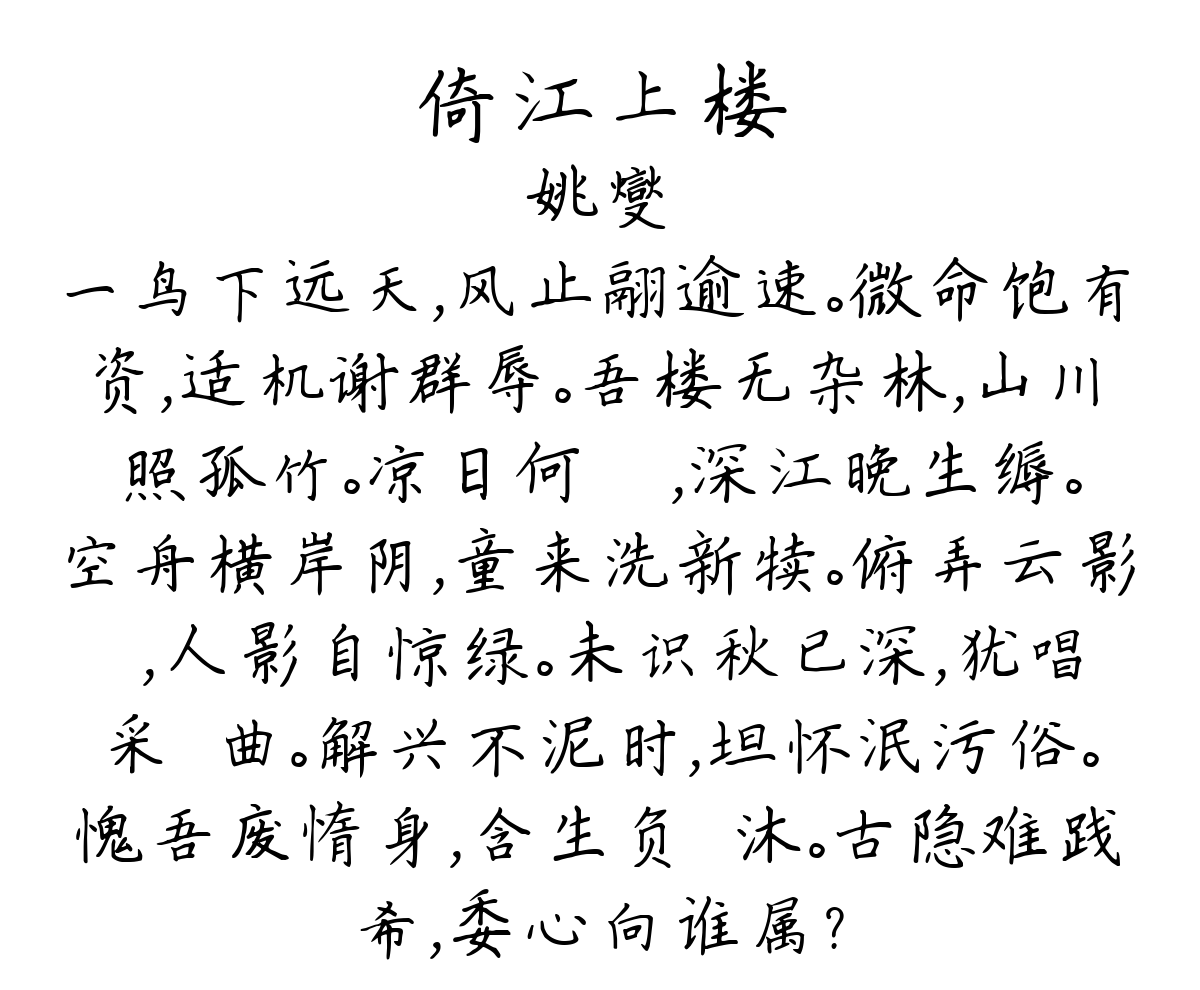 倚江上楼
姚燮
一鸟下远天,风止翮逾速。微命饱有
资,适机谢群辱。吾楼无杂林,山川
照孤竹。凉日何 ,深江晚生缛。
空舟横岸阴,童来洗新犊。俯弄云影
,人影自惊绿。未识秋已深,犹唱
采 曲。解兴不泥时,坦怀泯污俗。
愧吾废惰身,含生负 沐。古隐难践
希,委心向谁属?